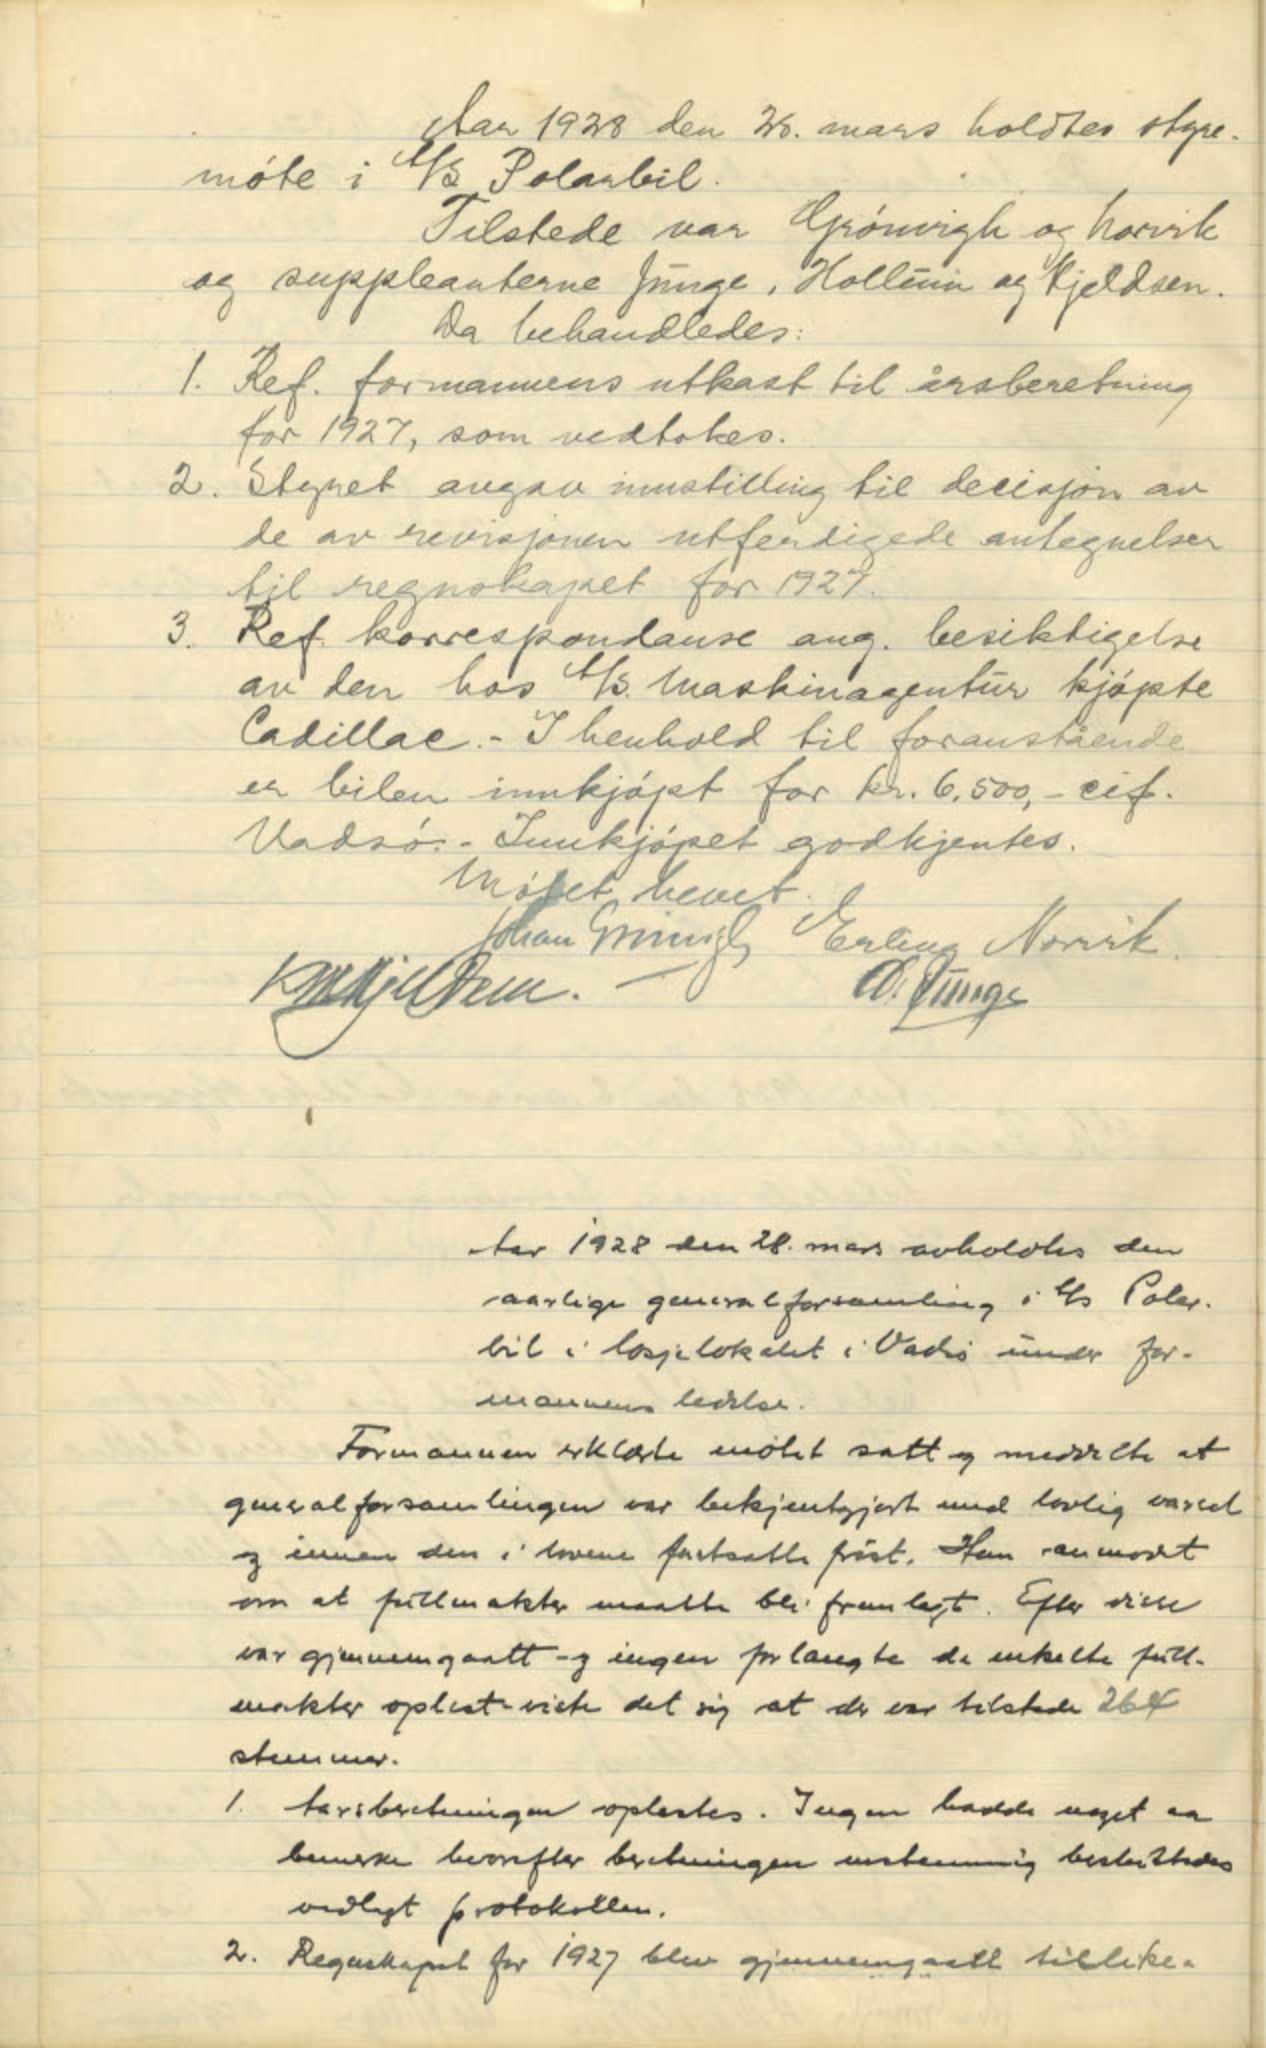 Aar 1928 den 28. mars holdtes styre-
møte i A/S Polarbil.
Tilstede var Grönvigh og Norvik
og suppleanterne Junge, Hollum og Kjeldsen.
Da behandledes:
1. Ref. formannens utkast til årsberetning
for 1927, som vedtokes.
2. Styret avgav innstilling til decisjon av
de av revisjonen utferdigede antegnelser
til regnskapet for 1927.
3. Ref. korrespondanse ang. besiktigelse
av den hos A/S. Maskinagentur kjøpte
Cadillac. - I henhold til foranstående
er bilen innkjøpt for kr. 6.500,- cif.
Vadsø. - Innkjøpet godkjentes.
Møtet hevet.
Johan Grönvigh Erling Norvik.
Kjeldsen. Junge
Aar 1928 den 28. mars avholdtes den
aarlige generalforsamling i A/S Polar-
bil i losjelokalet i Vadsø under for-
mannens ledelse.
Formannen erklærte møtet satt og meddelte at
generalforsamlingen var bekjentgjort med lovlig varsel
og innen den i lovene fastsatte frist. Han anmodet
om at fullmakter maatte bli fremlagt. Efter disse
var gjennemgaatt - og ingen forlangte de enkelte full-
makter oplest - viste det sig at der var tilstede 264
stemmer.
1. Aarsberetningen oplestes. Ingen hadde noget aa
bemerke hvorefter beretningen enstemmig besluttedes
vedlagt protokollen.
2. Regnskapet for 1927 blev gjennemgaatt tillike-